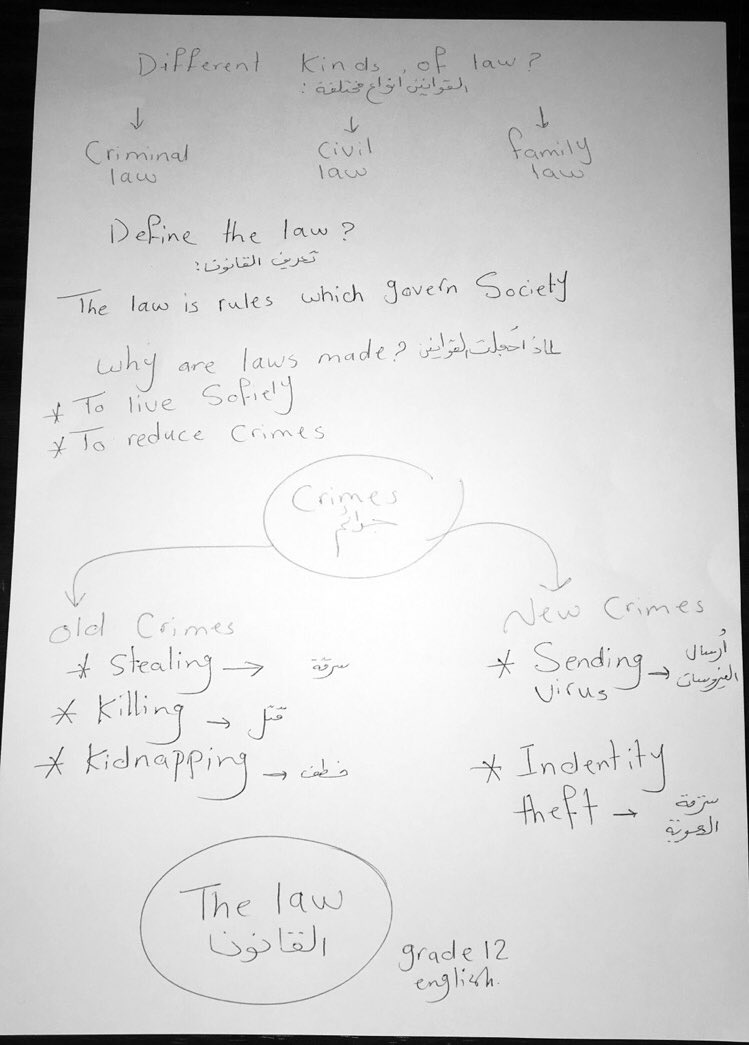 Different Kinds of law?
القوانين انواع مختلفة :
Criminal law
Civil law
family law
Define the law?
تعريف القانون:
The law is rules which govern Society
Why are laws made? لماذا القوانين
* To live Sofiely
* To reduce Crimes
Crimes
جرائم
Old Crimes
* Stealing → سرقة
* Killing → قتل
* Kidnapping → خطف
New Crimes
* Sending → أرسال
virus الفيروسات
* Indentity
theft → سرقة
الهوية
The law
القانون
grade 12
english.